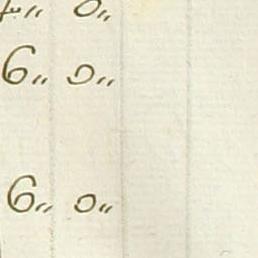 0,,
6,, 0,,
6,, 0,,